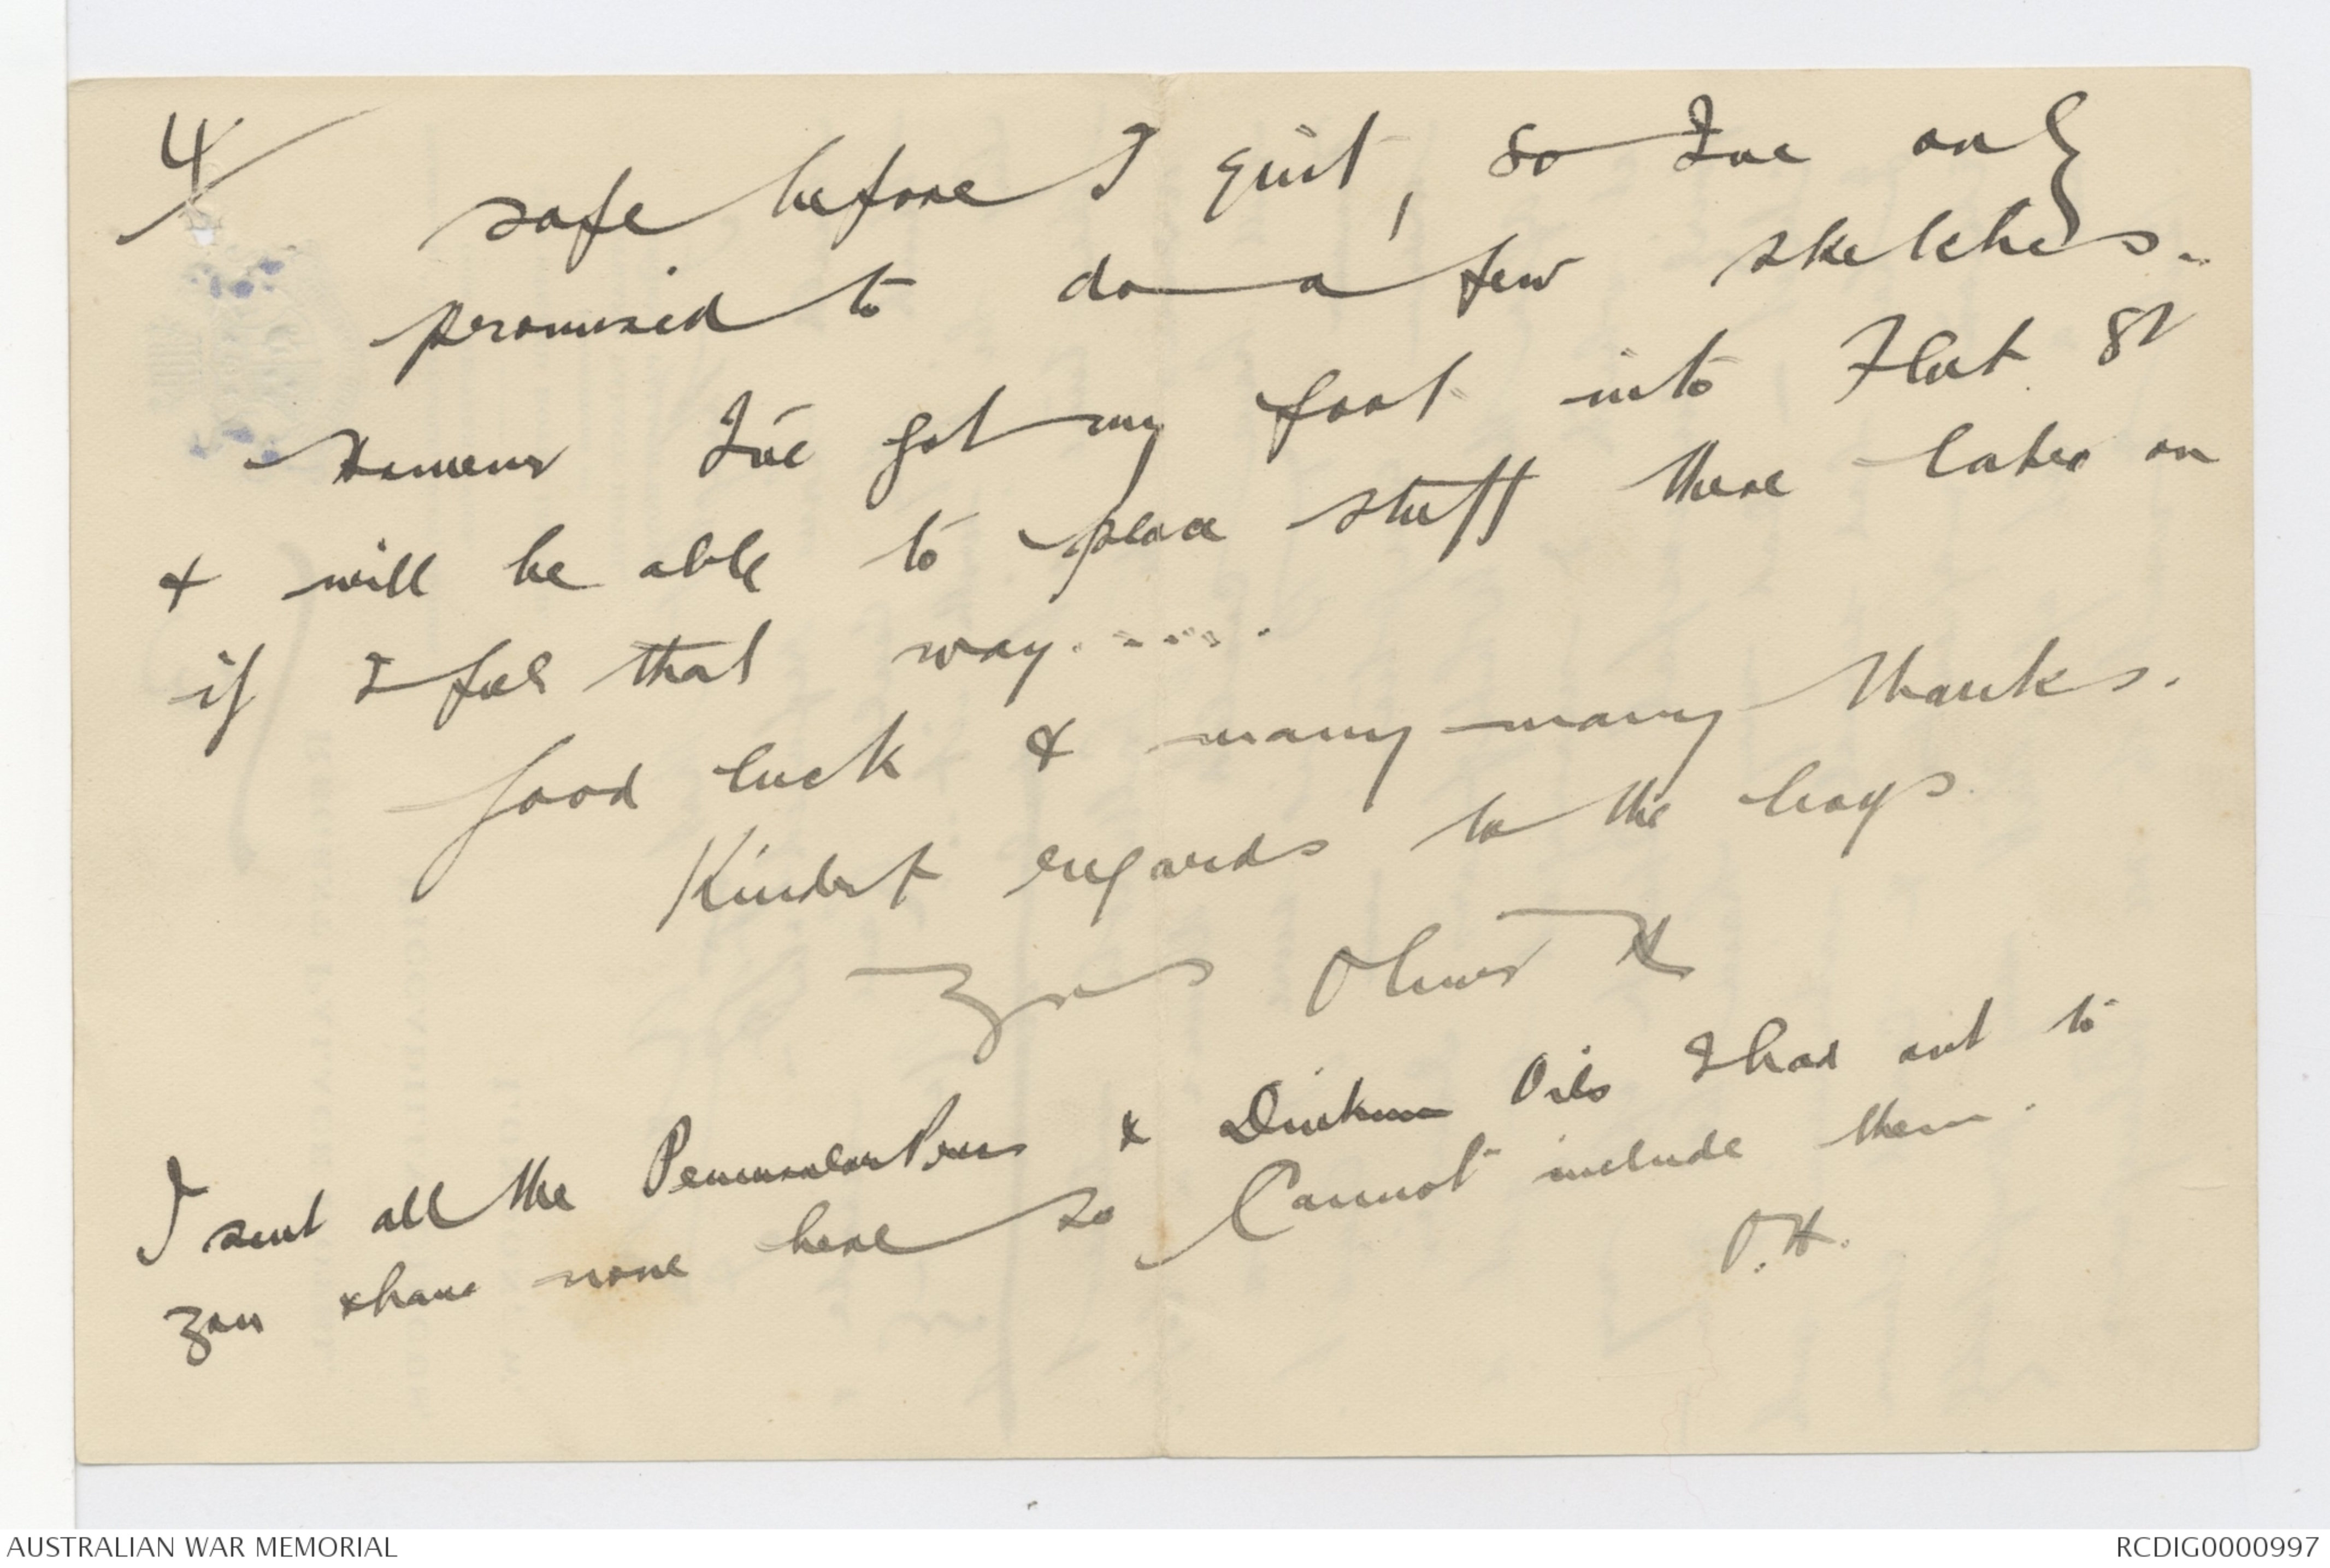 4/
safe before I quit, so Ive only
promised to do a few sketches.
However I've got my foot into Fleet St
& will be able to place stuff there later on
if I feel that way......
Good luck & many many thanks.
Kindest regards to the boys
Yours Oliver H
I sent all the Peninsular Press & Dinkum Oils I had out to
you & have none here so Cannot include them.
O.H.
AUSTRALIAN WAR MEMORIAL
RCDIG0000997